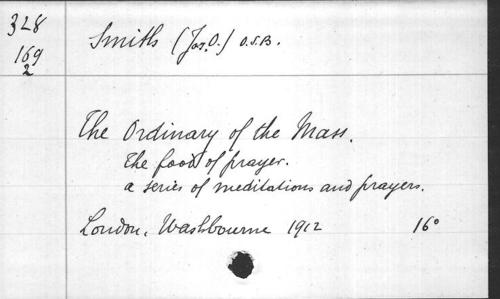 328
Smith (Jos. O.) O.S.B.
169
2
The Ordinary of the Mass.
The food of prayer.
a series of meditations and prayers.
London, Washbourne 1912 16°